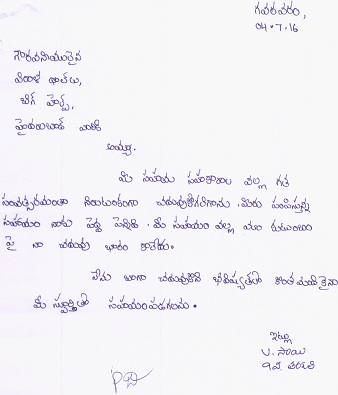 గవరవరం,
04.7.16
గౌరవనీయులైన
విరాళ దాతలు,
బిగ్ హెల్ప్,
హైదరాబాద్ వారికి
అయ్యా.
మీ సహాయ సహకారాల వల్ల గత
సంవత్సరమంతా నిరాటంకంగా చదువుకోగలిగాను. మీరు పంపిస్తున్న
సహాయం నాకు పెద్ద పెన్నిది. మీ సహాయం వల్ల మా కుటుంబం
పై నా చదువు భారం కాలేదు.
నేను బాగా చదువుకొని భవిష్యత్తులో కొంత మందికైనా
మీ స్పూర్తితో సహాయంపడగలను.
ఇట్లు
V. సాయి
9వ తరగతి